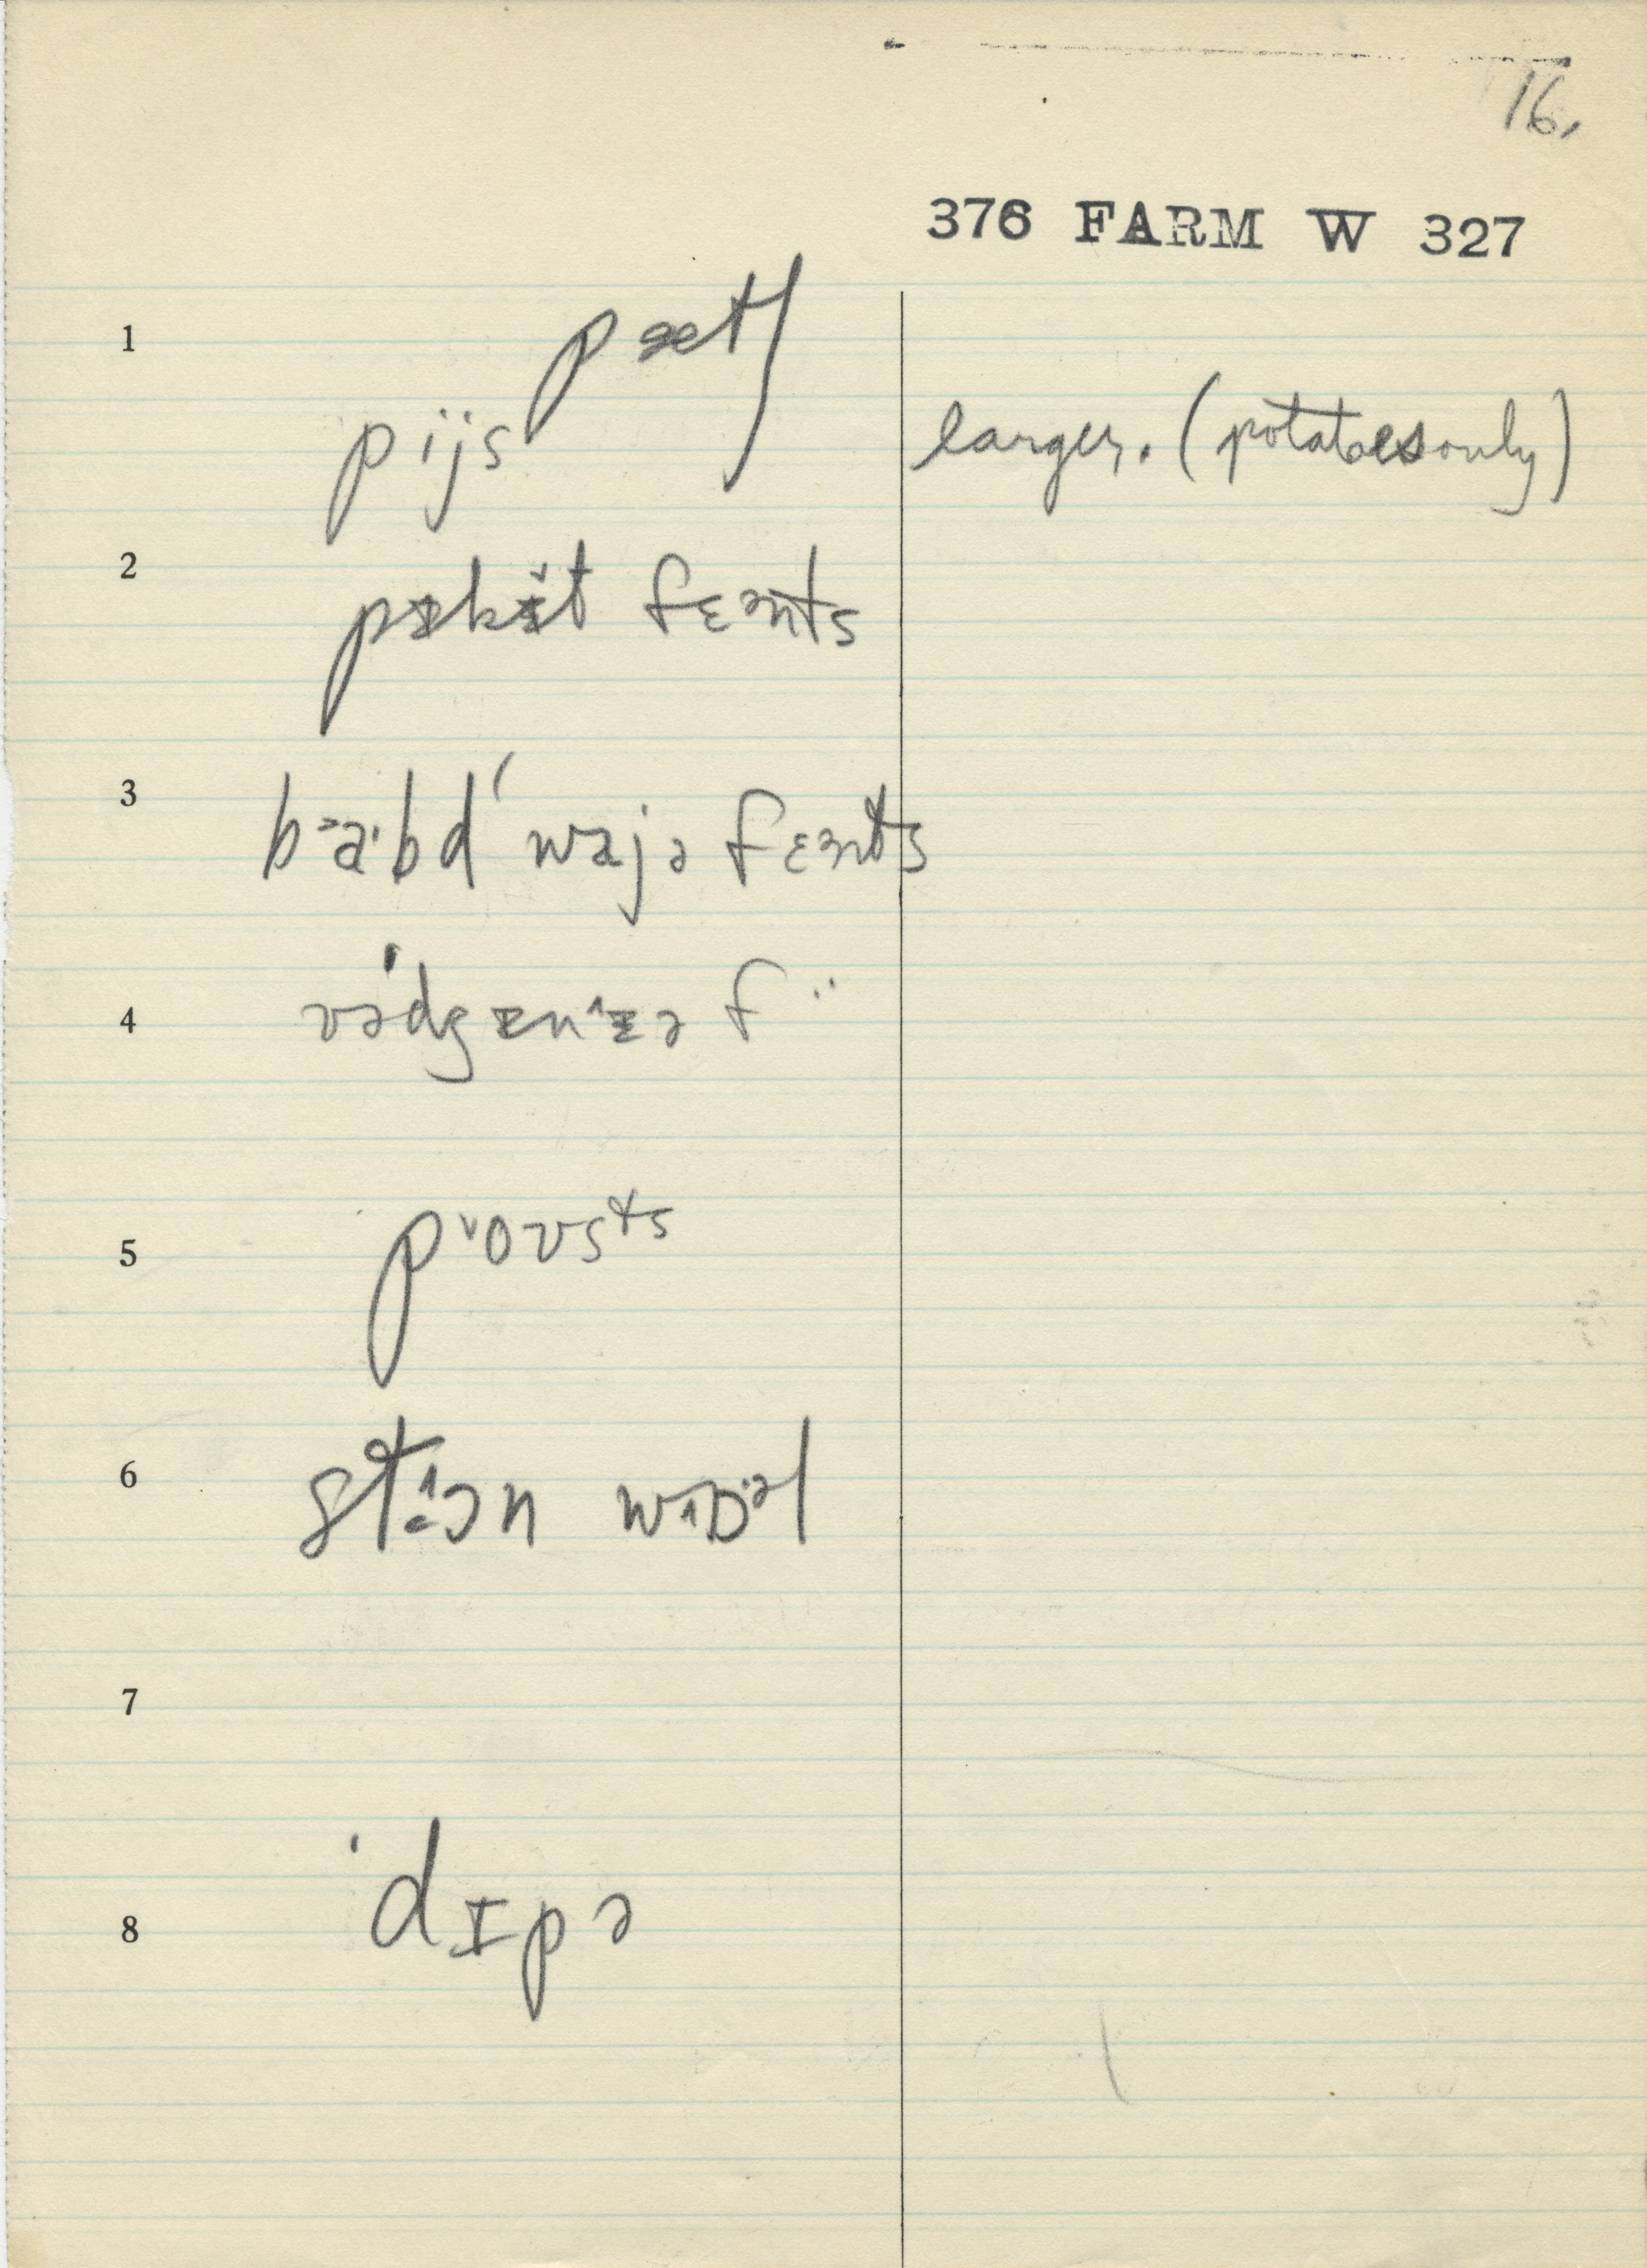 16.
376 FARM W 327
1 pætʃ
pijs larger. (potatoes only)
2 pɪkɪ̆t fɛənts
3 ba·bd wajə fɛənts
4 vədʒɪnɪə f ¨
5 povsts
6 stən wɒəl
7
8 ˈdɪpə